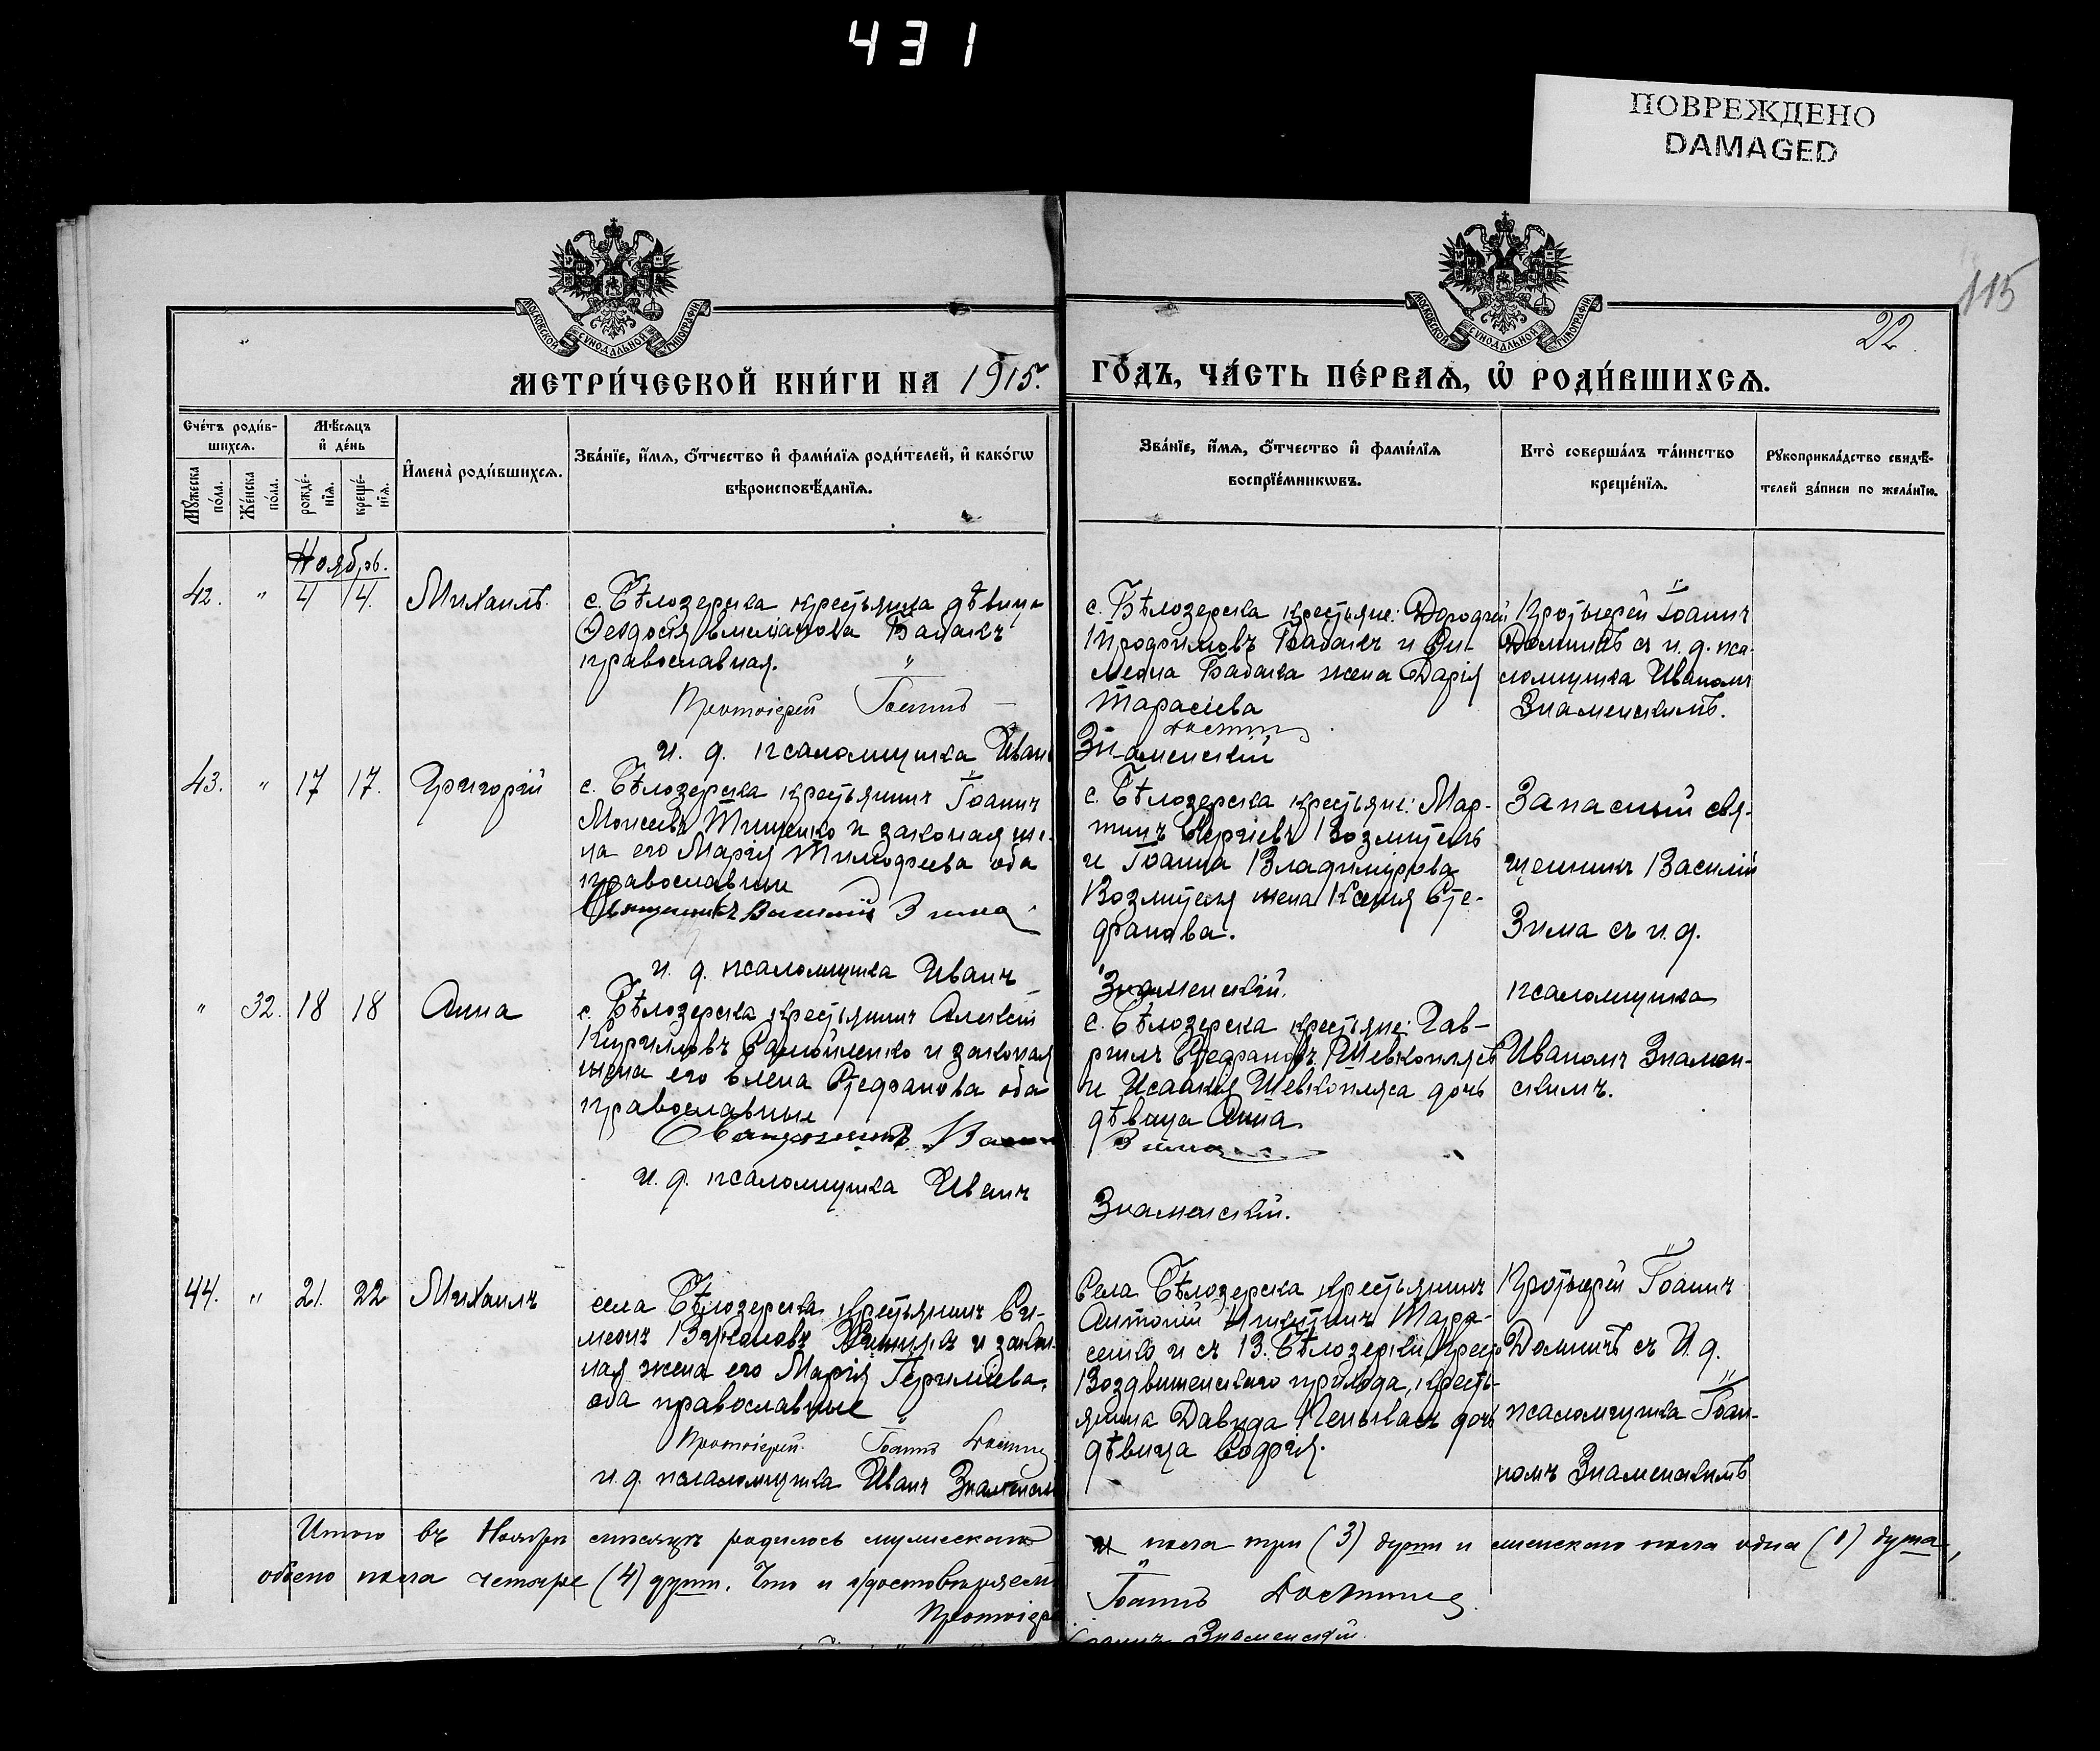 431
ПОВРЕЖДЕНО
DAMAGED
115
22
МОСКОВСКОЙ СѴНОДАЛЬНОЙ ТИПОГРАФІИ
МОСКОВСКОЙ СѴНОДАЛЬНОЙ ТИПОГРАФІИ
МЕТРИ́ЧЕСКОЙ КНИ́ГИ НА 1915 г. ГО́ДЪ, ЧА́СТЬ ПЕ́РВАѦ, Ѡ҆ РОДИ́ВШИХСѦ.
Сче́тъ роди́в-
шихсѧ.
Мꙋ́жеска по́ла.
Же́нска по́ла.
Мѣ́сѧцъ
и҆ де́нь
рожде́-нїѧ.
креще́-нїѧ.
И҆мена̀ роди́вшихсѧ.
Зва́нїе, и҆́мѧ, ѻ҆́тчество и҆ фами́лїѧ роди́телей, и҆ како́гѡ
вѣроисповѣ́данїѧ.
Зва́нїе, и҆́мѧ, ѻ҆́тчество и҆ фами́лїѧ
воспрїе́мникѡвъ.
Кто̀ соверша́лъ та́инство
креще́нїѧ.
Рꙋкоприкла́дство свидѣ́-
телей за́писи по жела́нїю.
Ноябрь.
42. " 4 4. Михаилъ.
с. Бѣлозерска крестьянка дѣвица
Феодосія Емеліанова Бабакъ
православная.
Протоіерей Іоаннъ
и. д. псаломщика Иванъ
с. Бѣлозерска крестьяне: Дорофей
Трофимовъ Бабакъ и Си-
меона Бабака жена Дарія
Тарасіева
Знаменскій
Протоіерей Іоаннъ
съ и. д. пса-
ломщика Иваномъ
Знаменскимъ.
43. " 17 17. Григорій
с. Бѣлозерска крестьянинъ Іоаннъ
Моисеевъ Тищенко и законная же-
на его Марія Тимофеева оба
православные
Священникъ Василій Зима
и. д. псаломщика Иванъ
с. Бѣлозерска крестьяне: Мар-
тинъ Сергіевъ Возмитель
и Іоанна Владимірова
Возмителя жена Ксенія Сте-
фанова.
Знаменскій.
Запасный свя-
щенникъ Василій
Зима съ и. д.
псаломщика
Иваномъ Знамен-
скимъ.
" 32. 18 18 Анна
с. Бѣлозерска крестьянинъ Алексій
Кирилловъ Самойленко и законная
жена его Елена Стефанова оба
православные
Священникъ
и. д. псаломщика Иванъ
с. Бѣлозерска крестьяне: Гав-
риилъ Стефановъ Шевкоплясъ
и Исаакія Шевкопляса дочь
дѣвица Анна
Зима
Знаменскій.
44. " 21. 22 Михаилъ
села Бѣлозерска крестьянинъ Си-
меонъ и закон-
ная жена его Марія
оба православные
Протоіерей Іоаннъ
и. д. псаломщика Иванъ Знаменскій
Села Бѣлозерска крестьянинъ
Антоній Никитинъ Тара-
сенко и съ В. Бѣлозерки, Кресто
Воздвиженскаго прихода, кресть-
янина Давида дочь
дѣвица Софія.
Протоіерей Іоаннъ
съ И. д.
псаломщика Іоан-
номъ Знаменскимъ
Итого въ Ноябрѣ мѣсяцѣ родилось мужескаго пола три (3) души и женскаго пола одна (1) душа,
обоего пола четыре (4) души. Что и удостовѣряемъ
Протоіерей Іоаннъ
Знаменскій.